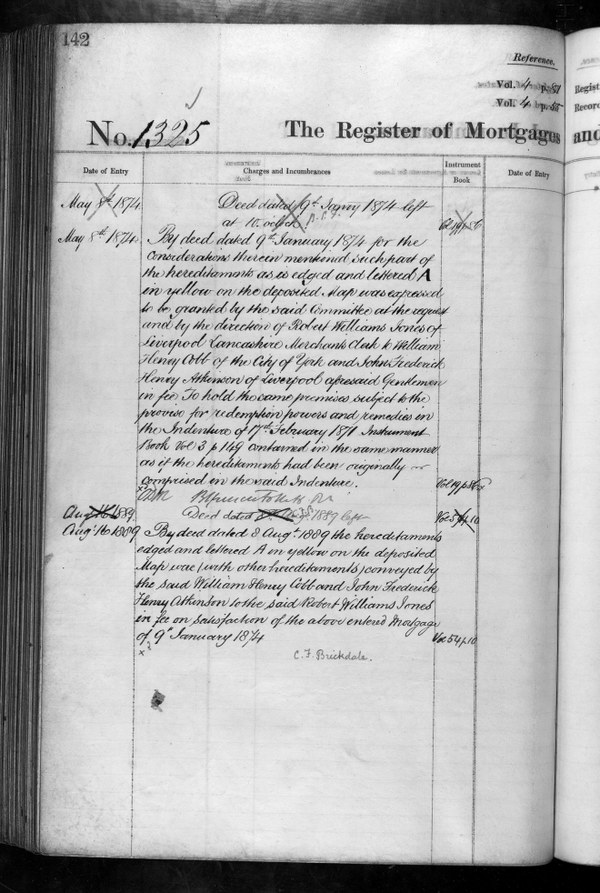 142
Reference.
Vol. 4 p. 81
Vol. 4 p. 55
No. 1325 The Register of Mortgages and
Regist
Record
Date of Entry Charges and Incumbrances Instrument Book Date of Entry
May 8th 1874 Deed dated 9th Janry 1874 left
at 10 oclock
May 8th 1874 By deed dated 9th January 1874 for the
Considerations therein mentioned such part of
the hereditaments as is edged and lettered A
in yellow on the deposited Map was expressed
to be granted by the said Committee at the request
and by the direction of Robert Williams Jones of
Liverpool Lancashire Merchants Clerk to William
Henry Cobb of the City of York and John Frederick
Henry Atkinson of Liverpool aforesaid Gentlemen
in fee To hold the same premises subject to the
proviso for redemption powers and remedies in
the Indenture of 17th February 1871 Instrument
Book Vol 3 p 149 contained in the same manner
as if the hereditaments had been originally
comprised in the said Indenture. Vol 19 p 86
Aug 16 1889 Deed dated Augt 1889 left Vol 54 p 10
Augt 16 1889 By deed dated 8 Augt 1889 the hereditaments
edged and lettered A in yellow on the deposited
Map was (with other hereditaments) conveyed by
the said William Henry Cobb and John Frederick
Henry Atkinson to the said Robert Williams Jones
in fee on satisfaction of the above entered Mortgage
of 9th January 1874 Vol 54 p 10
C. F. Brickdale.